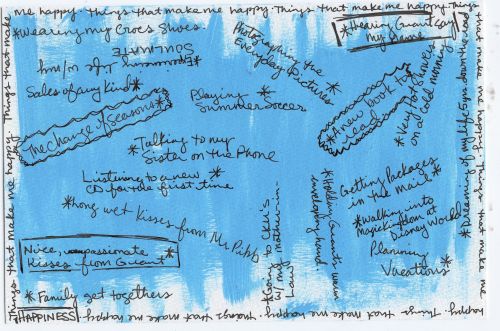 Things that make me happy. Things that make me happy. Things that make me happy. Things
that make me happy. Things that make me happy. Things that make me happy
*Wearing my Crocs Shoes.
SOULMATE
*Discovering I do w/my
Sales of any kind*
The Change of Seasons*
Photographing the
Everyday Pictures
*
Playing
Summer Soccer
*Hearing Guant say
My name
*A new book to
read
*Very hot showers
on a cold morning
*Talking to my
Sister on the Phone
Listening to a new *
CD for the first time
*Long wet kisses from Mr. Pibb
Nice, compassionate *
Kisses from Guant
*Family get togethers
*Going to
w/my mother-in-
Law
*Holding Guant's warm
hand.
*Getting Packages
in the mail*
*Walking into
Magic Kingdom at
Disney World
Planning
Vacations*
*Dreaming of my life
HAPPINESS
happy. Things that make me happy. Things that make me happy. Things that make me happy.